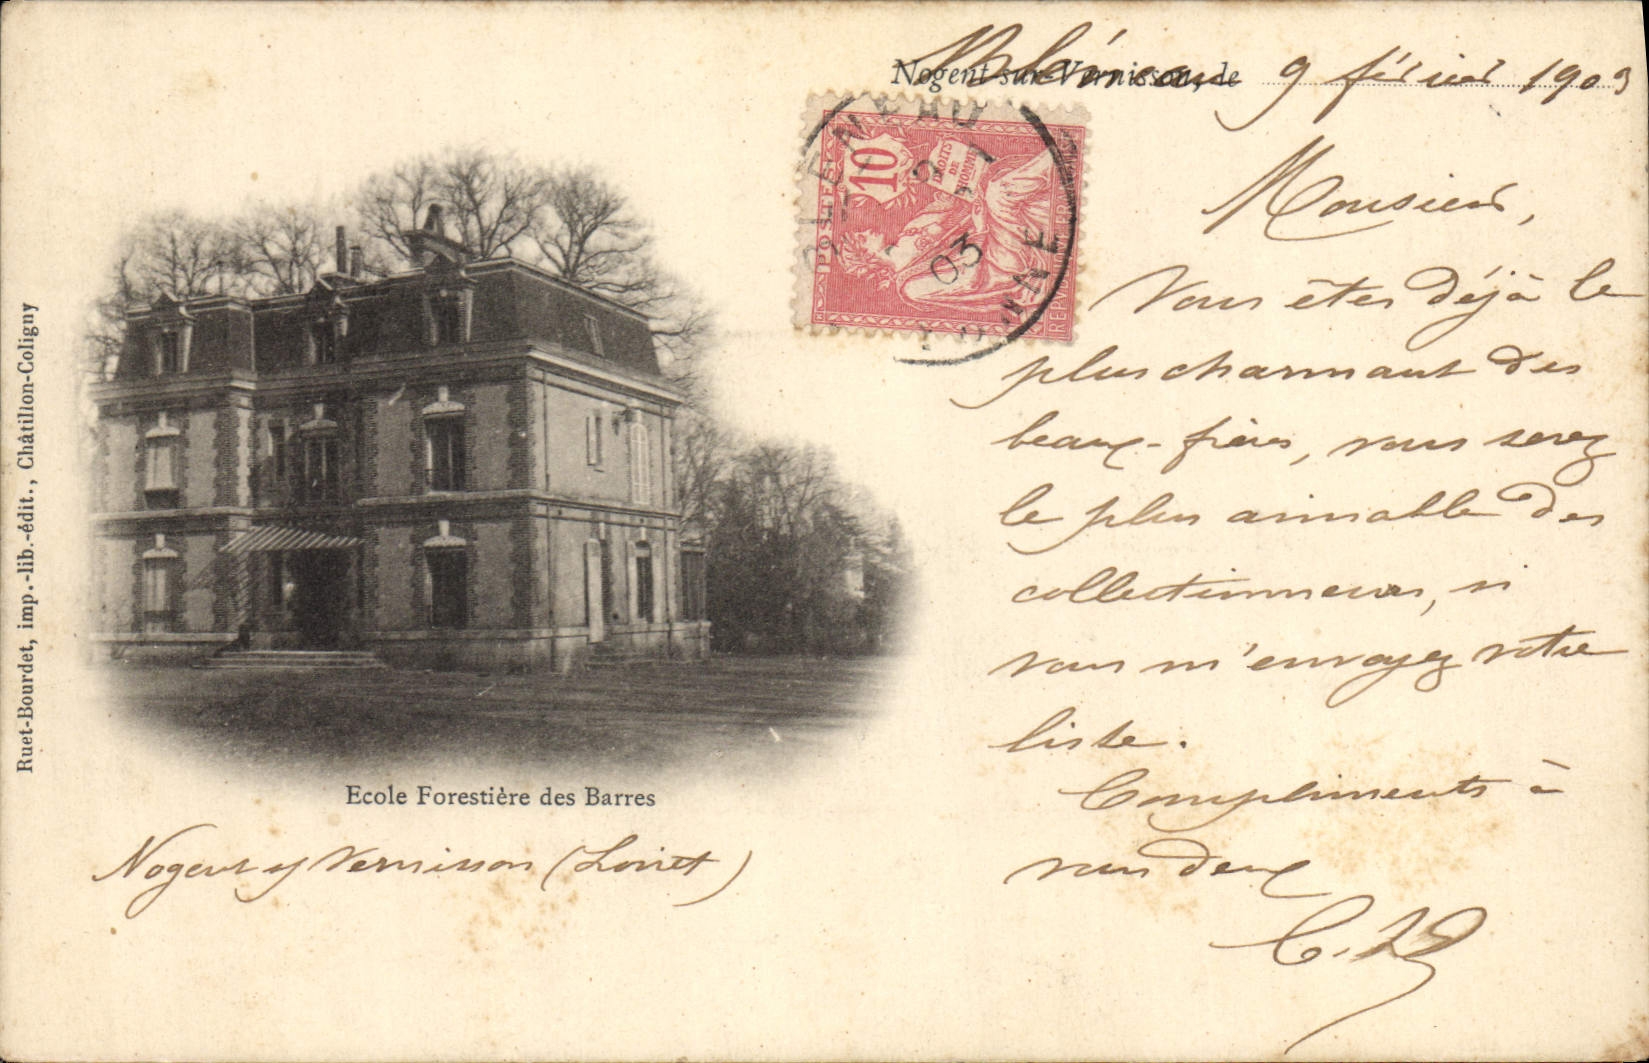 Nogent-sur-Vernisson, le
Bléneau 9 février 1903
BLENEAU
9
03
YONNE
10
POSTES
DROITS
DE
L'HOMME
Monsieur,
Vous êtes déjà le
plus charmant des
beaux-frères, vous serez
le plus aimable des
collectionneurs, si
vous m'envoyez votre
liste.
Compliments à
vous deux
Ruet-Bourdet, imp.-lib.-édit., Châtillon-Coligny
Ecole Forestière des Barres
Nogent s/ Vernisson (Loiret)